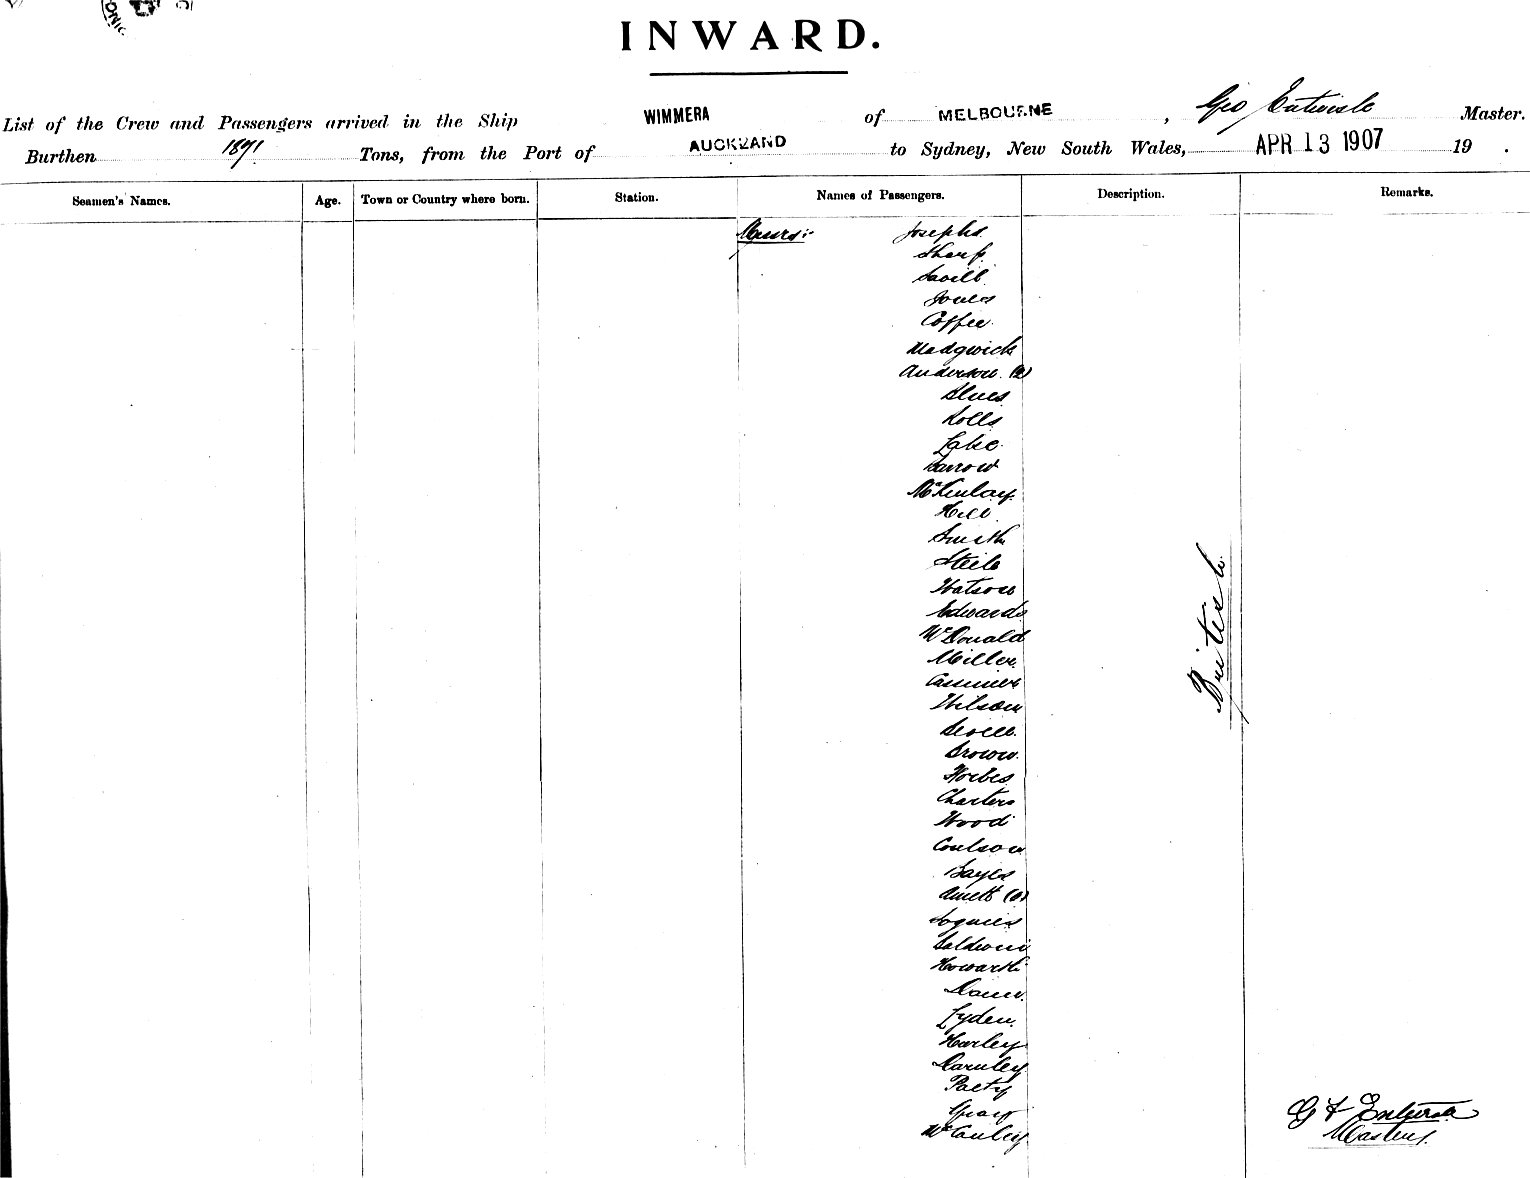 INWARD.
List of the Crew and Passengers arrived in the Ship WIMMERA of MELBOURNE, Geo Entwisle Master.
Burthen 1871 Tons, from the Port of AUCKLAND to Sydney, New South Wales, APR 13 1907 19 .
Seamen's Names. Age. Town or Country where born. Station. Names of Passengers. Description. Remarks.
Messrs:- Josephs.
Sharp.
Savill.
Jones
Coffee.
Madgwick
Anderson. (2)
Slues
Rolls
Lake.
Barrow
McKinlay.
Hill.
Smith
Steele
Watson
Edwards
McDonald
Miller.
Wilson
Brown.
Forbes
Charters
Wood
Coulson
Sayes
Baldwin
Howarth
Dann.
Lyden.
Harley
Darnley
Paety
Gray
McCauley
British
G F Entwisle
Master.